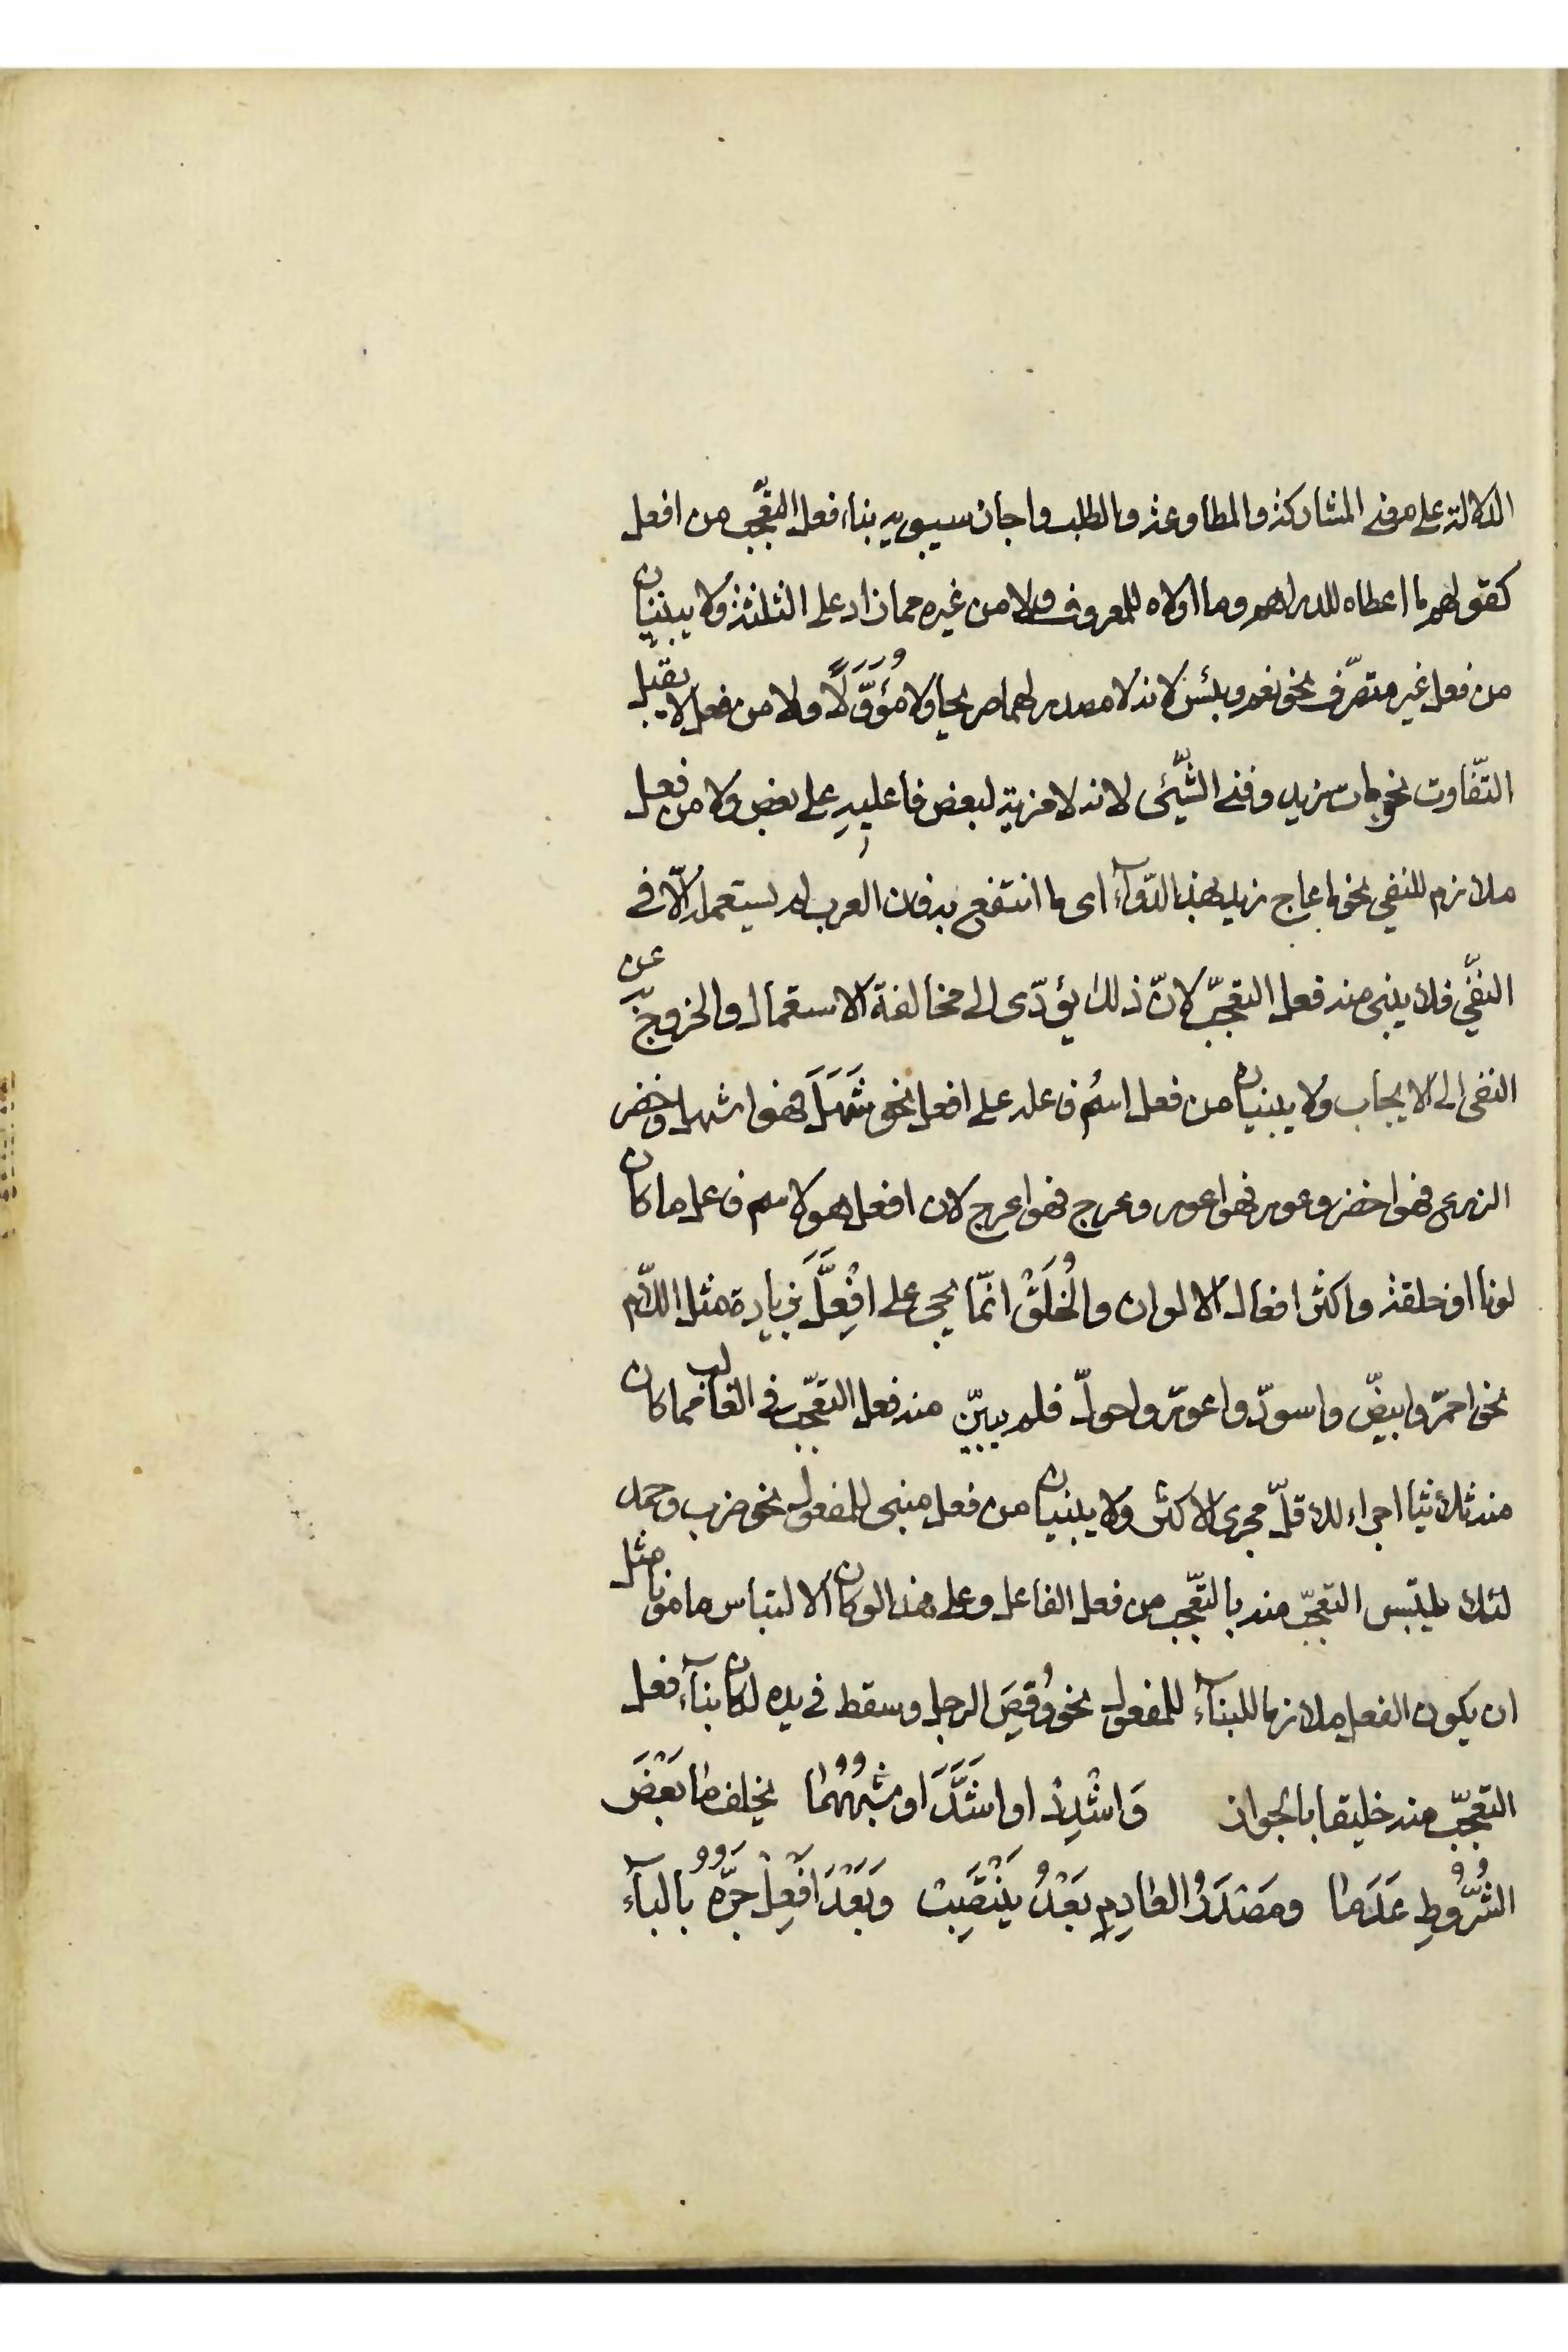 الدلالة على معنى المشاركة والمطاوعة والطلب واجاز سيبويه بناء فعل التعّجب من افعل
كقولهم ما اعطاه للدراهم وما اولاه للمعروف ولا من غيره مما زاد على الثلثة ولا يبنيان
من فعل غير متصرّف نحو نعم وبئس لانه لا مصدر لهما صريحا ولا مُؤَوَّلًا ولا من فعل لا يقبل
التّفاوت نحو مات زيد وفنى الشّيئ لانه لا مزية لبعض فاعليهِ على بعض ولا من فعل
ملازم للنفى نحو ما عاج زيد بهذا الدّوآء اى ما انتفع به فان العرب لم يستعمله الّا فى
النفّى فلا يبنى منه فعل التعجّب لانّ ذلك يؤدّى الى مخالفة الاستعمال والخروج عن
النفى الى الايجاب ولا يبنيان من فعل اسمُ فاعله على افعل نحو شَهَلَ فهو اشهل وخضر
الزرع فهو اخضر وعور فهو اعور وعرج فهو اعرج لان افعل هو لاسم فاعل ما كان
لونا او خلقة واكثر افعال الالوان والْخُلَقْ انّما يجى على افْعِلَّ بزيادة مثل اللّام
نحو احمرّ وابيضّ واسودّ واعورّ واحولّ فلم يبيّن منه فعل التعجّب فى الغالب مما كان
منه ثلاثيا اجراء للاقلّ مجرى الاكثر ولا يبنيان من فعل مبنى للمفعول نحو ضرب وحمد
لئلا يلتبس التعجّب منه بالتعّجب من فعل الفاعل وعلى هذا لو كان الالتباس مامونا مثل
ان يكون الفعل ملازما للبنآء للمفعول نحو وُقِصَ الرجل وسقط فى يده لكان بنآء فعل
التعجّب منه خليقا بالجواز وَاشْدِدْ او اشَدَّ او شِبْهُهُمَا يخلف ما بَعْضَ
الشُّرُوطِ عَدَمَا ومَصْدَرُ العادِمِ بَعْدُ يَنْتَصِبْ وَبَعْدَ افْعِلْ جَرُّهُ بالبآء